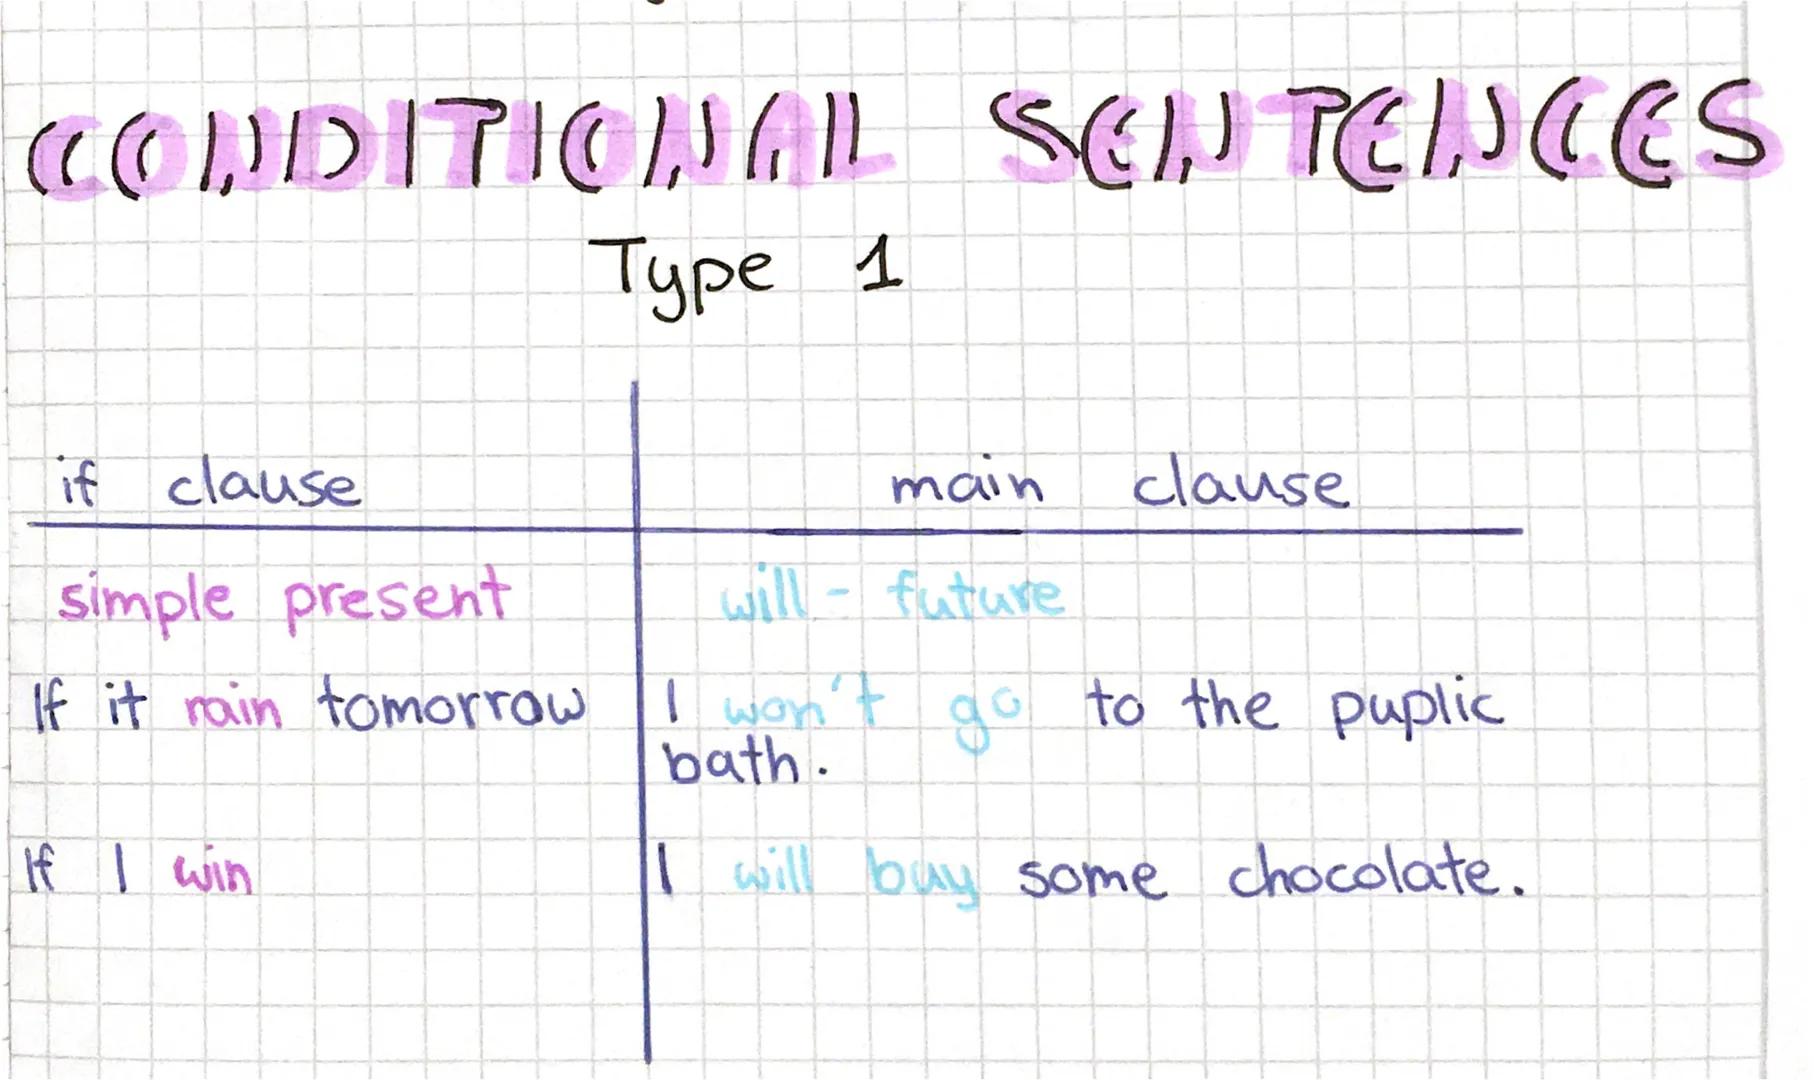 CONDITIONAL SENTENCES
Type 1
if clause main clause
simple present will - future
If it rain tomorrow I won't go to the puplic
bath.
If I win I will buy some chocolate.